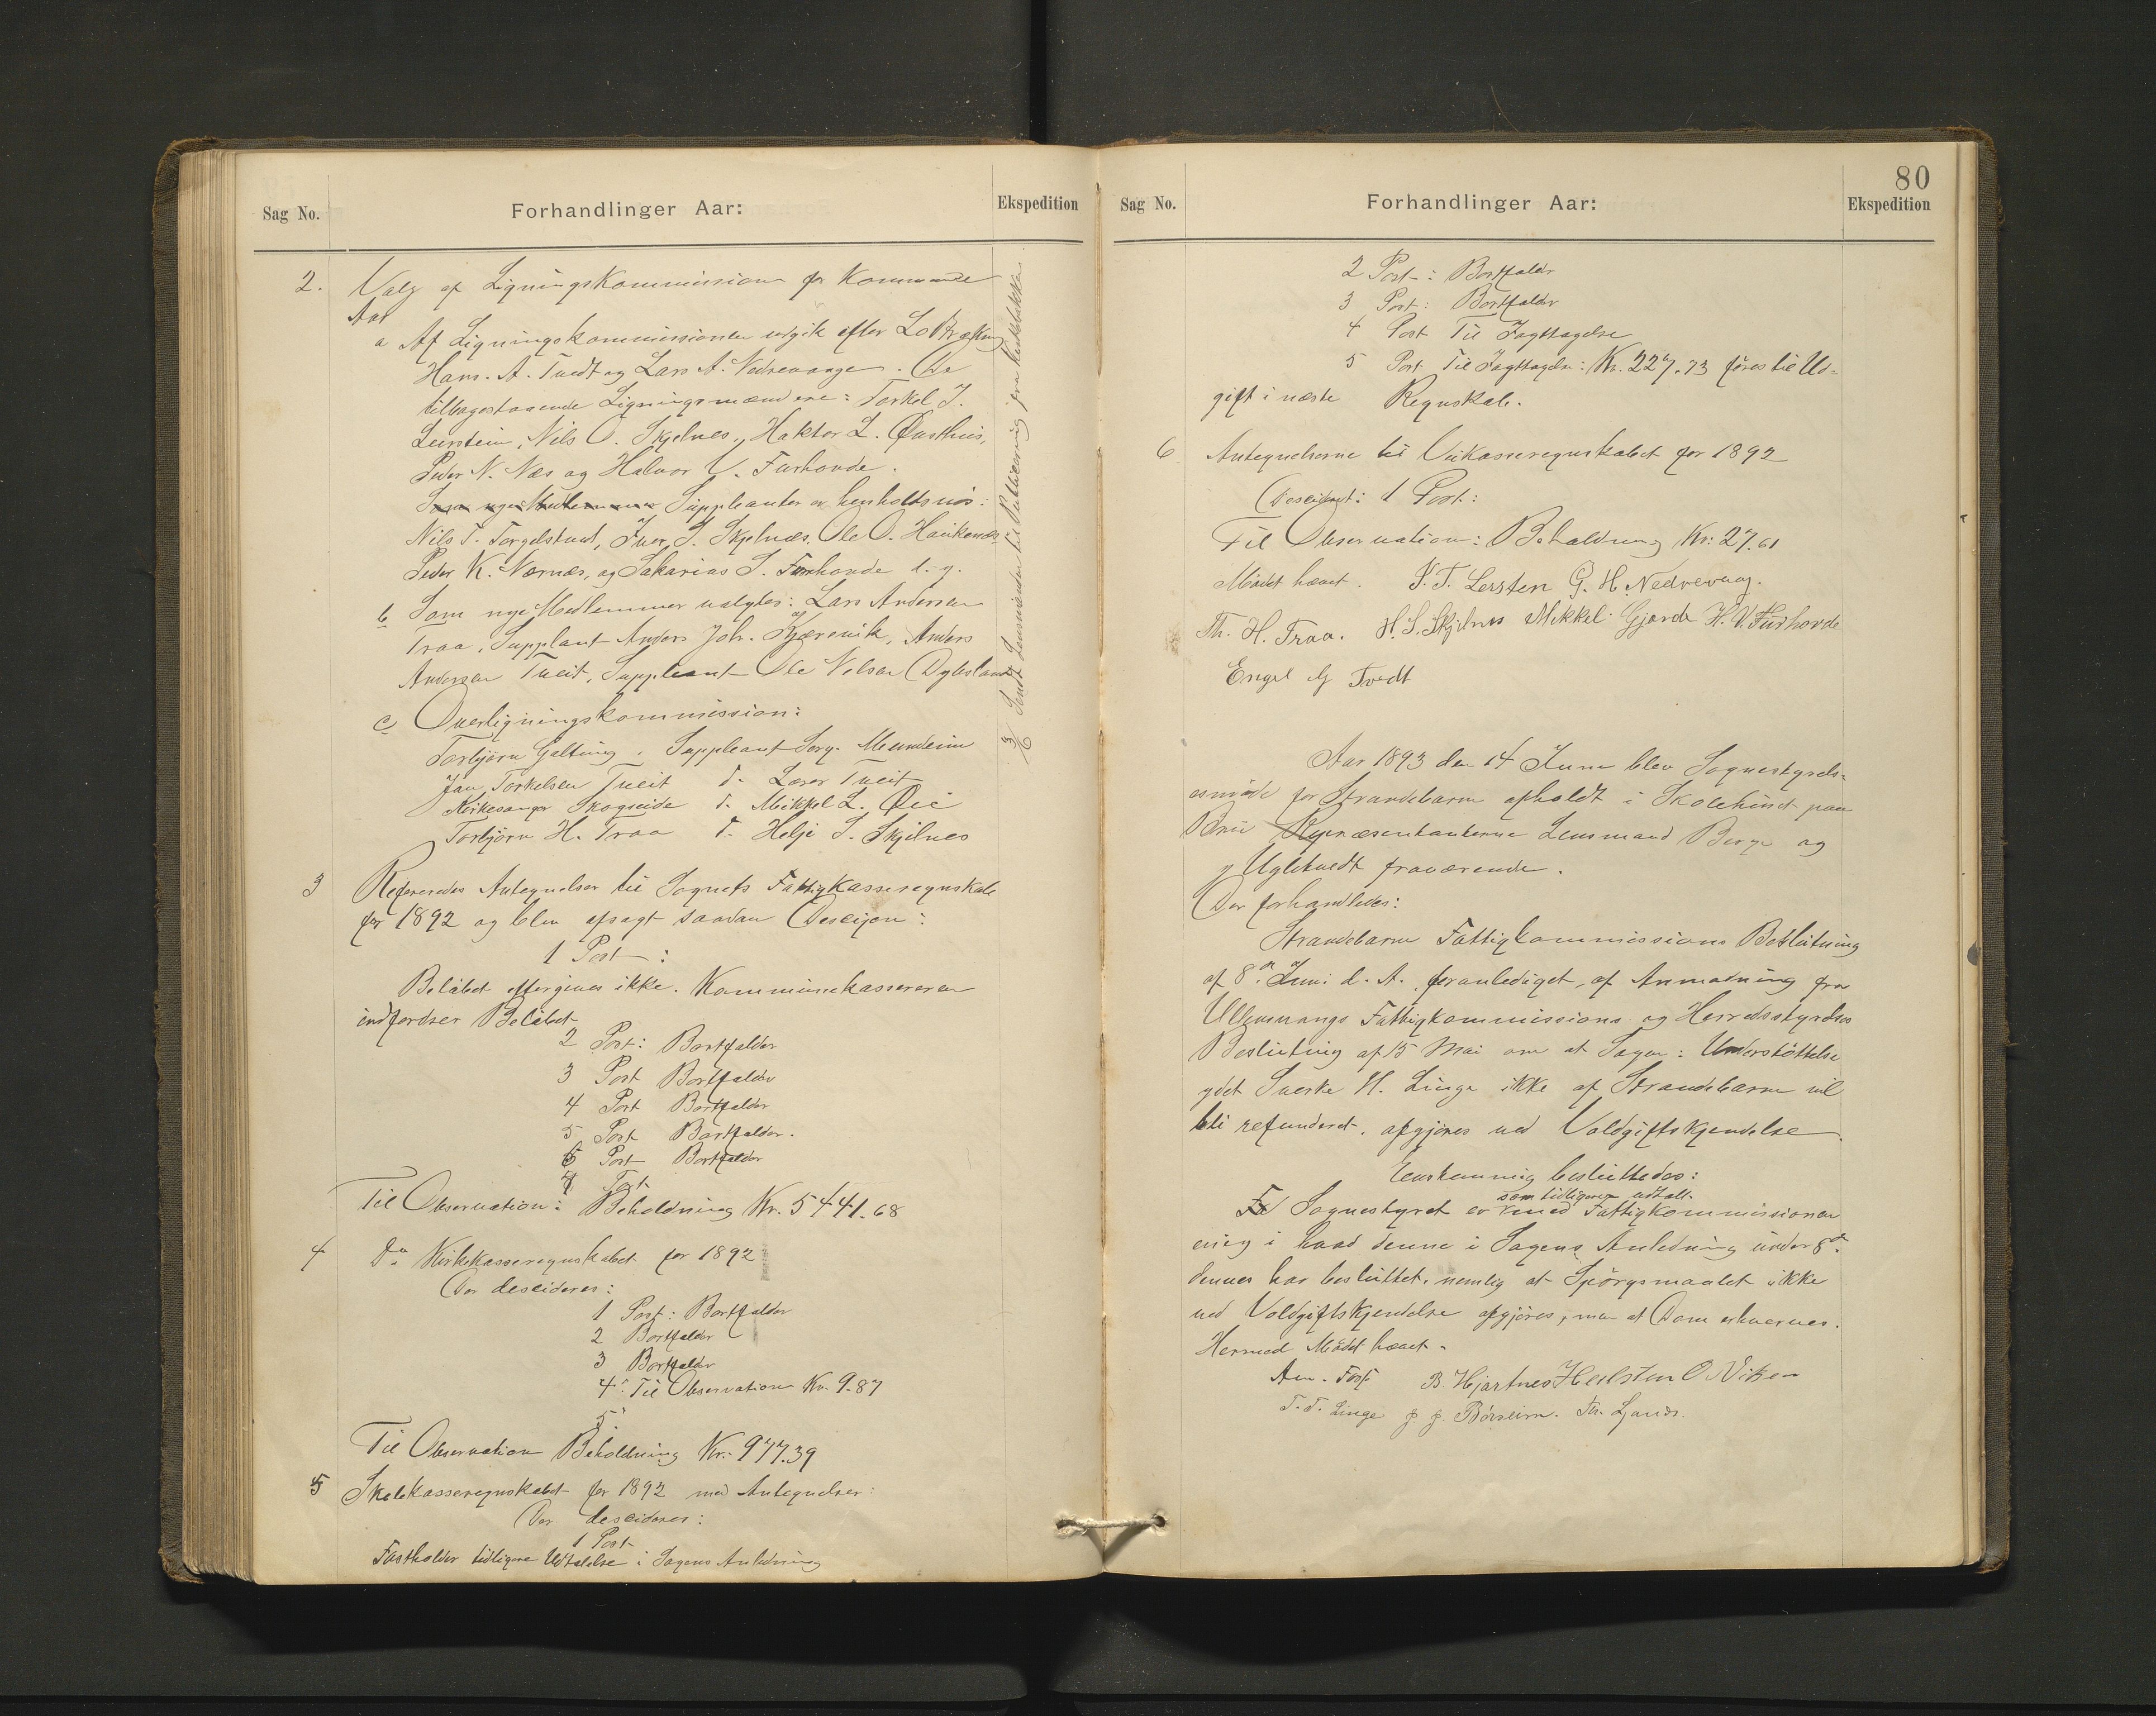 Sag No.
Forhandlinger Aar:
Ekspedition
2. Valg af Ligningskommission for kommende
Aar
a Af Ligningskommissionen udgik efter Lodtrækning
Hans. A. Tvedt og Lars A. Nedrevaage. De
tilbagestaaende Ligningsmændene: Torkel J.
Leirstein, Nils O. Skjelnes, Haktor L. Øusthus,
Peder N. Næs og Halvor V. Furhovde.
Som nye Medlemmer Suppleanter er henholdsvis:
Nils T. Torgelstved, Iver J. Skjelnæs, Ole O. Haukenæs
Peder K. Nornæs, og Sakarias S. Furhovde d. y.
b Som nye Medlemmer valgtes: Lars Andersen
Traa, Supplant Anders Joh. Kjærevik, og Anders
Andersen Tveit, Suppleant Ole Nelson Dyvesland
c Overligningskommission:
Torbjørn Galtung, Suppleant Sorg. Mundeim
Jan Torkelsen Tveit d. Lærer Tveit
Kirkesanger Skogseide d. Mikkel L. Øie
Torbjørn H. Traa d. Helje S. Skjelnes
3/6 Sendt Lensmanden til Publicering fra Kirkebakke
3 Refereredes Antegnelser til Sognets Fattigkasseregnskab
for 1892 og blev afsagt saadan Descijon:
1 Post:
Beløbet eftergives ikke. Kommunekassereren
indfordrer Beløbet
2 Post: Bortfalder
3 Post Bortfalder
4 Post Bortfalder
5 Post Bortfalder.
6 Post Bortfalder
7 Post
Til Observation: Beholdning Kr. 5441.68
4 Do Kirkekasseregnskabet for 1892
Der descideres:
1 Post: Bortfalder
2 Bortfalder
3 Bortfalder
4: Til Observation Kr. 9.87
5.
Til Observation Beholdning Kr. 977.39
5 Skolekasseregnskabet for 1892 med Antegnelser:
Der descideres:
1 Post
Fastholder tidligere Udtalelse i Sagens Anledning
80
Sag No.
Forhandlinger Aar:
Ekspedition
2 Post: Bortfalder
3 Post: Bortfalder
4 Post Til Iagttagelse
5 Post Til Iagttagelse: Kr. 227.73 føres til Ud-
gift i næste Regnskab.
6 Antegnelserne til Veikasseregnskabet for 1892
Descideret: 1 Post:
Til Observation: Beholdning Kr: 27.61
Mødet hævet. T. T. Lersten G. H. Nedrevaag.
Th. H. Traa. H. S. Skjelnes Mikkel Gjerde H. V. Furhovde
Engel G Tvedt
Aar 1893 den 14 Juni blev Sognestyrels-
esmøde for Strandebarm afholdt i Skolehuset paa
Brü Repræsentanterne Lensmand Berge og
Ugletvedt fraværende.
Der forhandledes:
Strandebarm Fattigkommissions Beslutning
af 8de Juni d. A. foranlediget af Anmodning fra
Ullensvangs Fattigkommissions og Herredsstyrelses
Beslutning af 15 Mai om at Sagen: Understøttelse
ydet Sverke H. Linge ikke af Strandebarm vil
bli refunderet, afgjøres ved Voldgiftskjendelse.
Eenstemmig besluttedes:
som tidligere udtalt
Sognestyret er med Fattigkommissionen
enig i hvad denne i Sagens Anledning under 8de
dennes har besluttet, nemlig at Spørgsmaalet ikke
ved Voldgiftskjendelse afgjøres, men at Dom erhverves.
Hermed Mødet hævet.
Am. Foss B. Hjartnes H Eilsten O Viken
T. T. Linge J. J. Børseim. Th. Ljones.